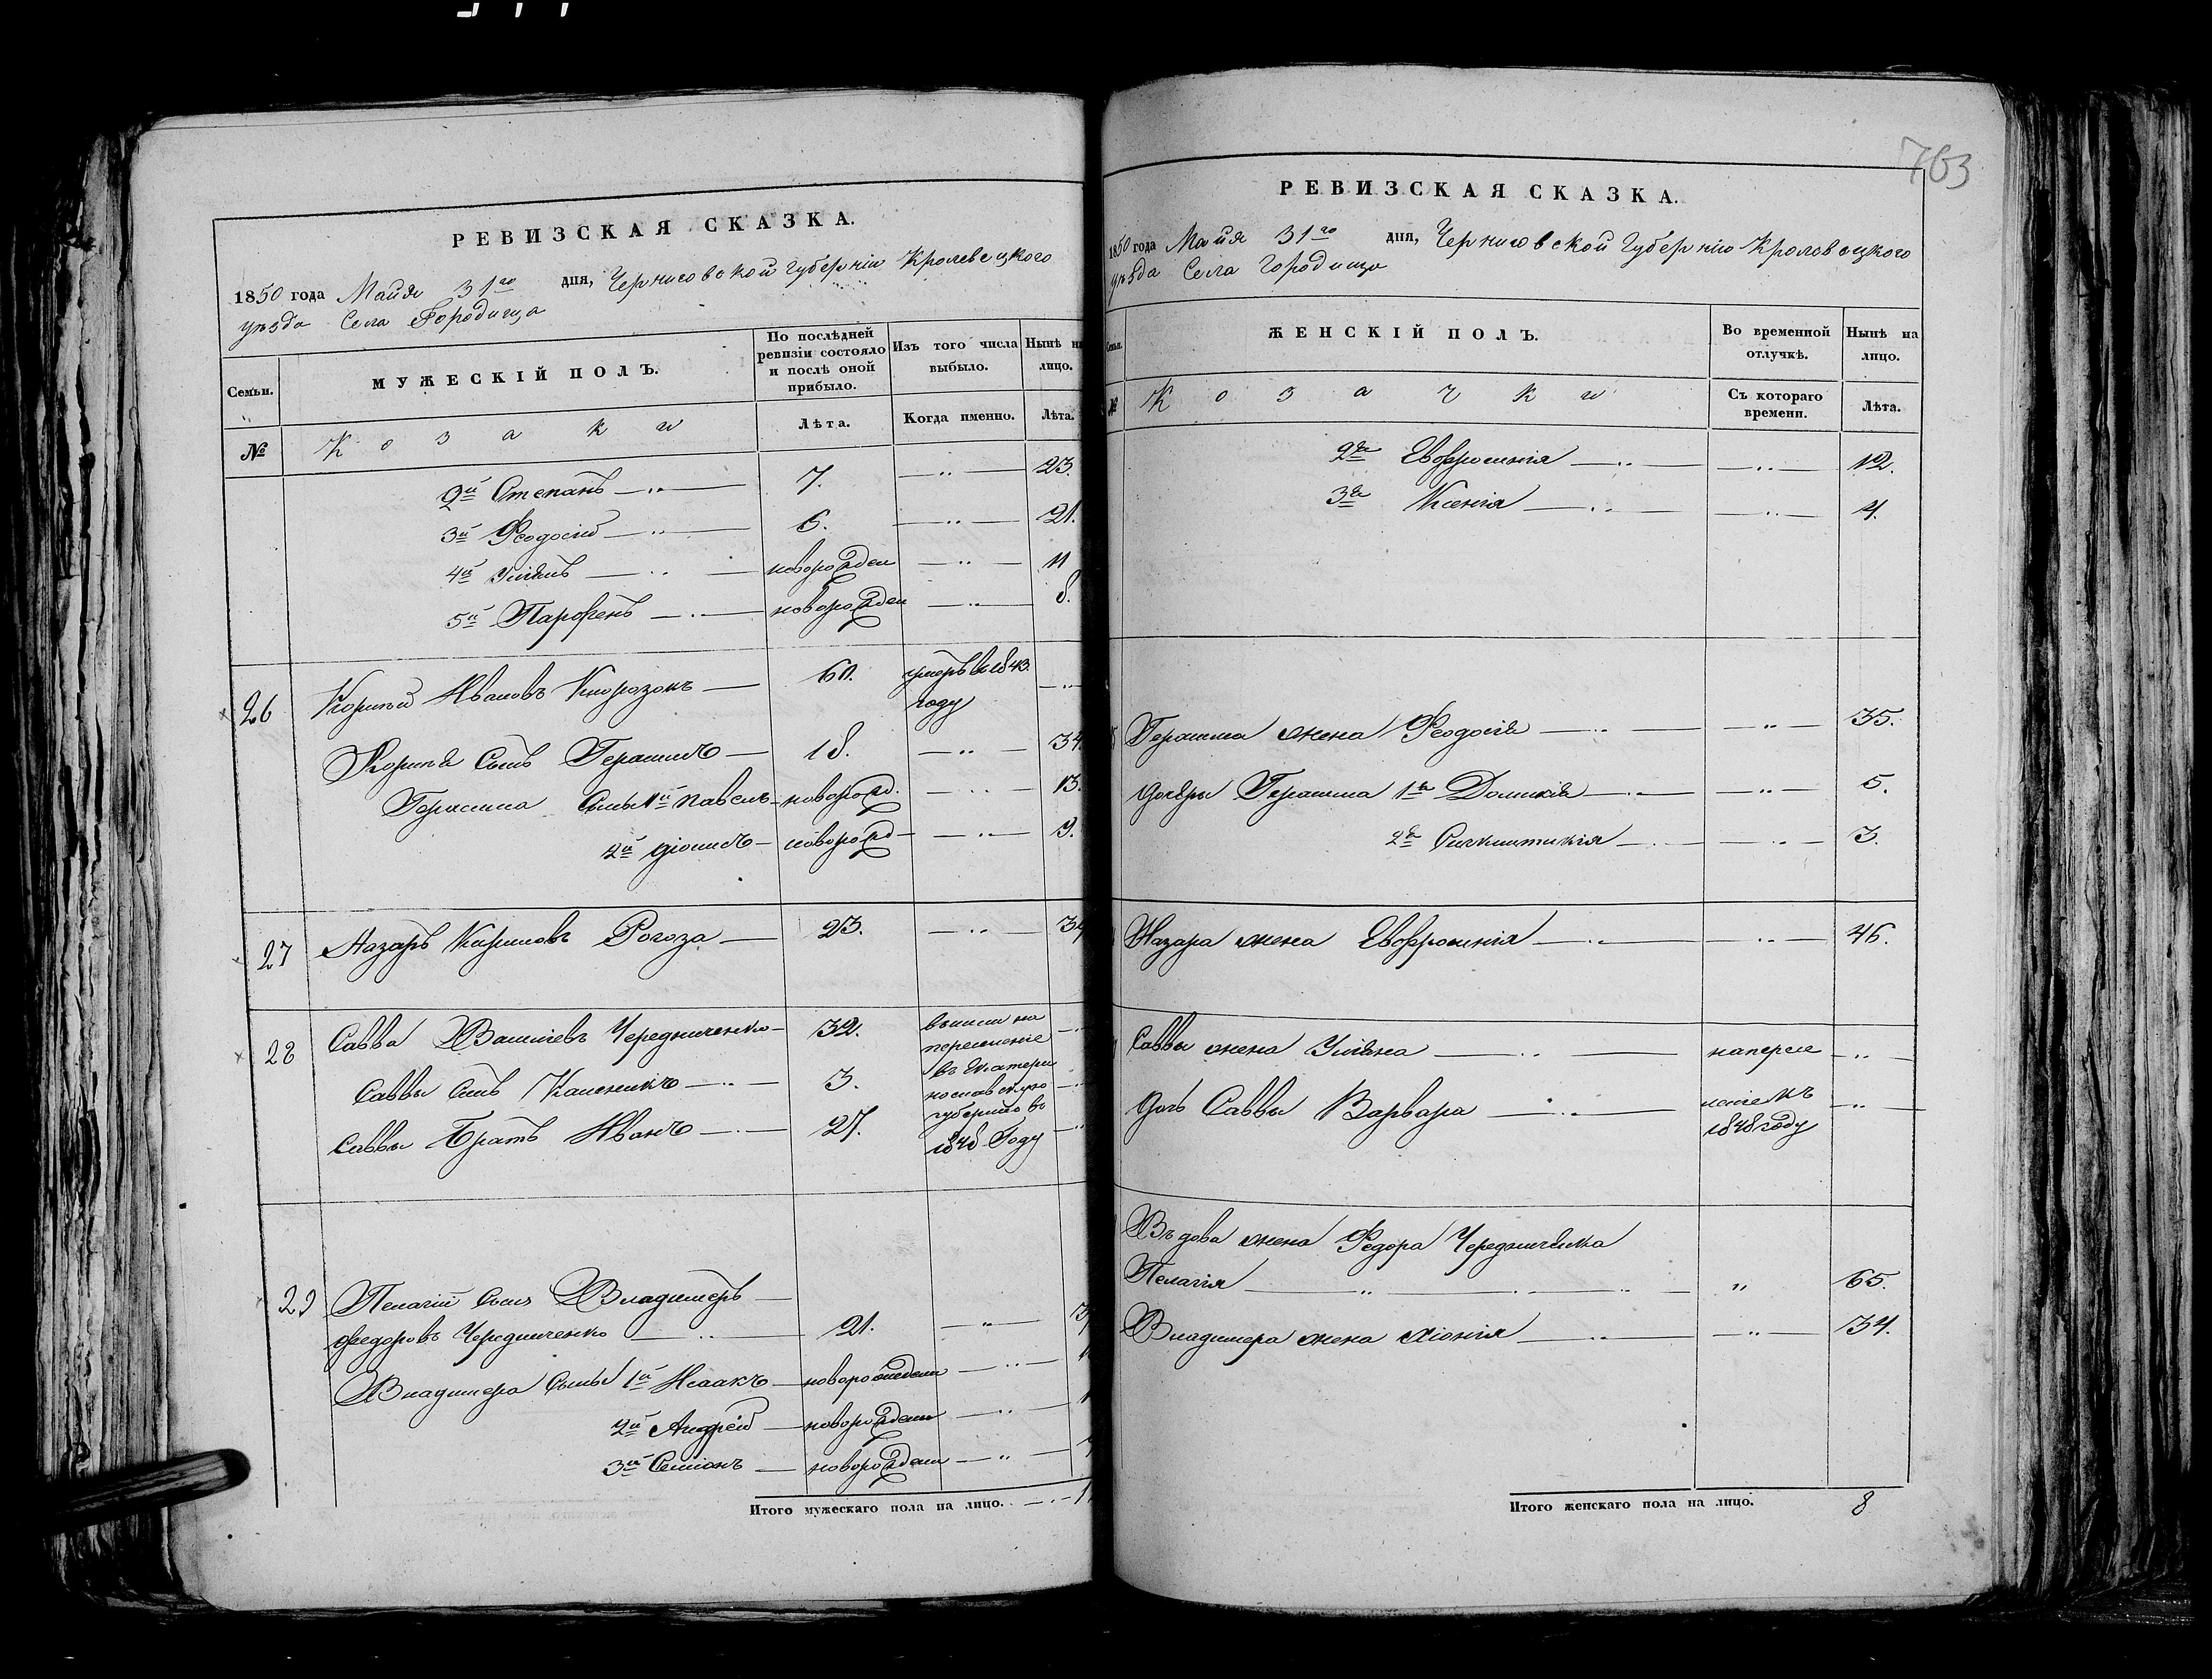 РЕВИЗСКАЯ СКАЗКА.
1850 года Майя 31го дня, Черниговской Губерніи Кролевецкого
уезда Села Городища
Семьи.
МУЖЕСКІЙ ПОЛЪ.
По послѣдней ревизіи состояло и послѣ оной прибыло.
Изъ того числа выбыло.
Нынѣ на лицо.
№
Козаки
Лѣта.
Когда именно.
Лѣта.
2й Степанъ 7. 23.
3й Феодосій 6. 21.
4й новорожден 11
5й Парфенъ новорожден 8.
26 Корнѣй Ивановъ 60. умеръ в 1843. году
Корнѣя Сынъ Герасимъ 18. 34
Герасима Сыны 1й Павелъ новорожд. 13.
2й новорожд 9.
27 Назаръ Кириловъ Рогоза 23. 39
28 Савва Василіевъ Чередниченко 32. вышли на
переселеніе
Саввы Сынъ Каленикъ 3. въ Екатери
нославскую
Саввы Братъ Иванъ 27. губернію въ
1848 Году
29 Пелагіи Сынъ Владимеръ
Федоровъ Чередниченко 21.
Владимера Сыны 1й Исаакъ новорожден
2й Андрей новорожден
3й Симіонъ новорожден
Итого мужескаго пола на лицо.
763
РЕВИЗСКАЯ СКАЗКА.
1850 года Майя 31го дня, Черниговской Губерніи Кролевецкого
уезда Села Городища
ЖЕНСКІЙ ПОЛЪ.
Во временной отлучкѣ.
Нынѣ на лицо.
№
Козачки
Съ котораго времени.
Лѣта.
2я Евфросинія 12.
3я Ксенія 4.
Герасима жена Феодосія 35.
дочери Герасима 1я Домникія 5.
2я 3.
Назара жена Евфросинія 46.
Саввы жена Уліяна на пересе
Дочь Саввы Варвара леніе въ
1848 году
Въдова жена Федора Чередниченка
Пелагія 65.
Владимера жена Хіонія 34.
Итого женскаго пола на лицо. 8